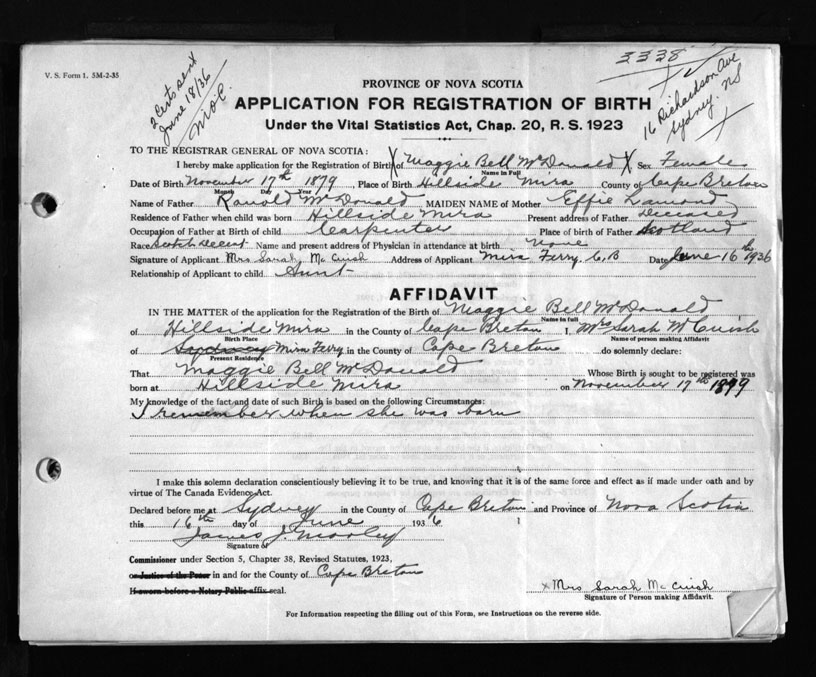 V. S. Form 1. 5M-2-35
2 Certs sent
June 18/36
3338
16 Richardson Ave
Sydney. NS
PROVINCE OF NOVA SCOTIA
APPLICATION FOR REGISTRATION OF BIRTH
Under the Vital Statistics Act, Chap. 20, R. S. 1923
TO THE REGISTRAR GENERAL OF NOVA SCOTIA:
I hereby make application for the Registration of Birth of Maggie Bell McDonald X Sex Female
Name in Full
Date of Birth November 17th 1879, Place of Birth Hillside Mira County of Cape Breton
Month Day Year
Name of Father Ranold McDonald, MAIDEN NAME of Mother Effie Lamond
Residence of Father when child was born Hillside Mira Present address of Father Deceased
Occupation of Father at Birth of child Carpenter Place of birth of Father Scotland
Race Scotch Decent Name and present address of Physician in attendance at birth None
Signature of Applicant Mrs Sarah Mc Cuish Address of Applicant Mira Ferry. C.B Date June 16th 1936
Relationship of Applicant to child Aunt
AFFIDAVIT
IN THE MATTER of the application for the Registration of the Birth of Maggie Bell McDonald
Name in full
of Hillside Mira in the County of Cape Breton I, Mrs Sarah McCuish
Birth Place Name of person making Affidavit
of Sydney Mira Ferry in the County of Cape Breton do solemnly declare:
Present Residence
That Maggie Bell McDonald Whose Birth is sought to be registered was
born at Hillside Mira on November 17th 1879
My knowledge of the fact and date of such Birth is based on the following Circumstances:
I remember when she was born
I make this solemn declaration conscientiously believing it to be true, and knowing that it is of the same force and effect as if made under oath and by
virtue of The Canada Evidence Act.
Declared before me at Sydney in the County of Cape Breton and Province of Nova Scotia
this 16th day of June 1936
James J.
Signature of
Commissioner under Section 5, Chapter 38, Revised Statutes, 1923,
or Justice of the Peace in and for the County of Cape Breton
If sworn before a Notary Public affix seal.
x Mrs Sarah Mc Cuish
Signature of Person making Affidavit.
For Information respecting the filling out of this Form, see Instructions on the reverse side.